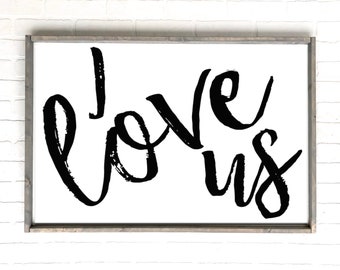 I
love
us